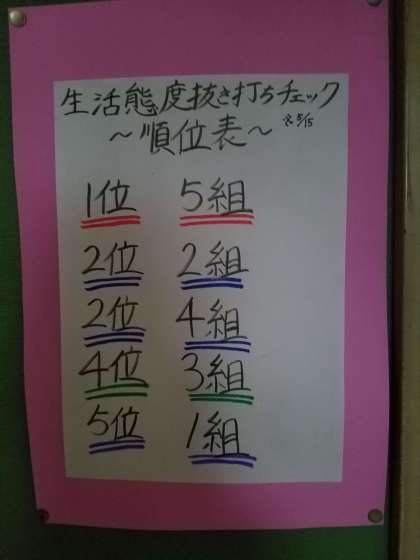 生活態度抜き打ちチェック
～順位表～ ※5/15
1位 5組
2位 2組
2位 4組
4位 3組
5位 1組